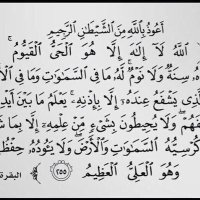 أَعُوذُ بِٱللَّهِ مِنَ ٱلشَّيْطَٰنِ ٱلرَّجِيمِ
ٱللَّهُ لَآ إِلَٰهَ إِلَّا هُوَ ٱلْحَىُّ ٱلْقَيُّومُ ۚ
ـهُۥ سِنَةٌ وَلَا نَوْمٌ ۚ لَّهُۥ مَا فِى ٱلسَّمَٰوَٰتِ وَمَا فِى ٱلْأَ
ـذِى يَشْفَعُ عِندَهُۥٓ إِلَّا بِإِذْنِهِۦ ۚ يَعْلَمُ مَا بَيْنَ أَيْدِ
ـفَهُمْ ۖ وَلَا يُحِيطُونَ بِشَىْءٍ مِّنْ عِلْمِهِۦٓ إِلَّا بِمَا شَ
كُرْسِيُّهُ ٱلسَّمَٰوَٰتِ وَٱلْأَرْضَ ۖ وَلَا يَـُٔودُهُۥ حِفْظُ
وَهُوَ ٱلْعَلِىُّ ٱلْعَظِيمُ ٢٥٥ البقرة